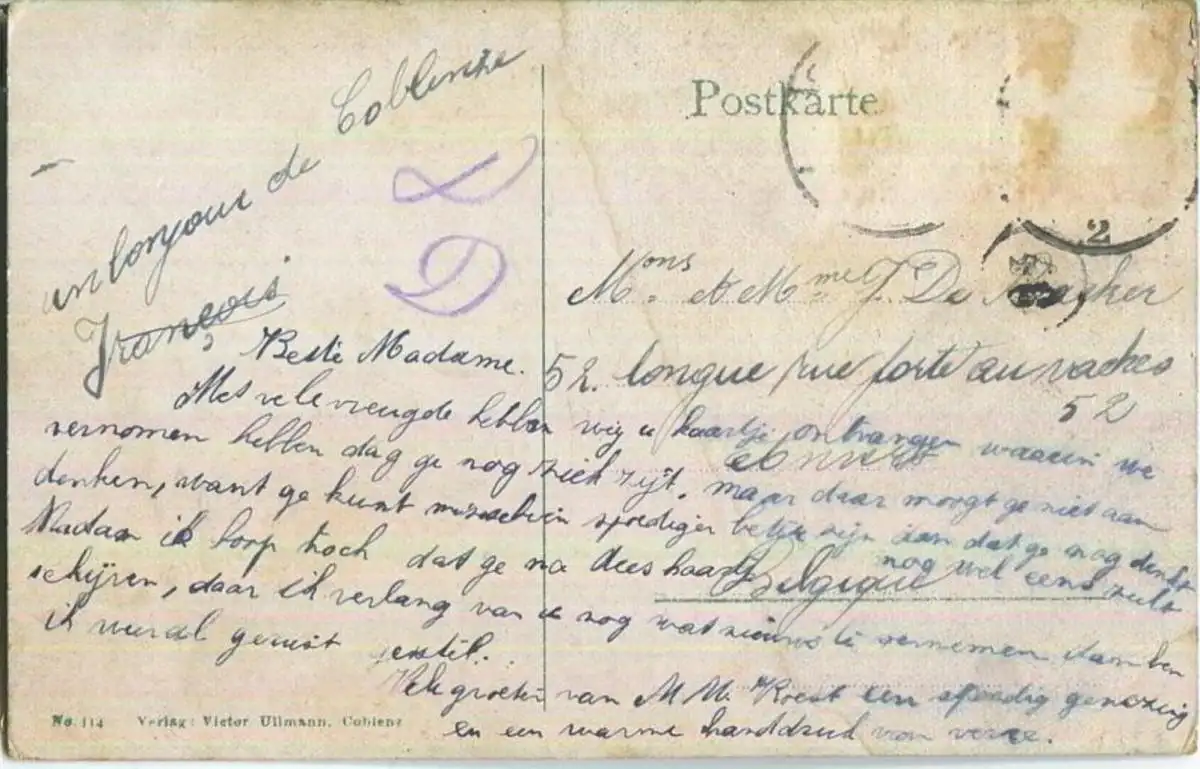 un bonjour de Coblence
François
L
D
Postkarte
2
Mons & Mme J. De
52. longue rue porte au vaches
52
Belgique
Beste Madame.
Met vele vreugde hebben wij u kaartje ontvangen waarin we
vernomen hebben dag ge nog ziek zijt, maar daar moogt ge niet aan
denken, want ge kunt spoediger beter zijn dan dat ge nog denkt
Madam ik hoop toch dat ge na dees kaart nog wel eens zult
schijven, daar ik verlang van u nog wat nieuws te vernemen dan ben
ik weral gerust
Vele groeten van M M. een spoedig genezing
en een warme handdruk van verre.
No 114 Verlag: Victor Ullmann, Coblenz